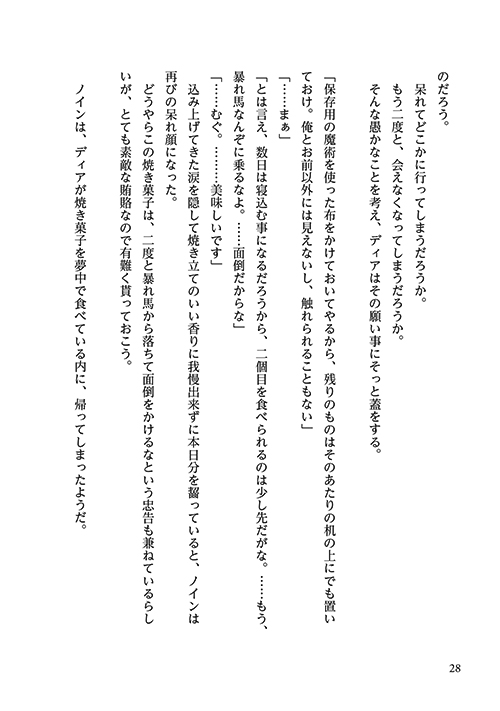 のだろう。
呆れてどこかに行ってしまうだろうか。
もう二度と、会えなくなってしまうだろうか。
そんな愚かなことを考え、ディアはその願い事にそっと蓋をする。
「保存用の魔術を使った布をかけておいてやるから、残りのものはそのあたりの机の上にでも置い
ておけ。俺とお前以外には見えないし、触れられることもない」
「……まぁ」
「とは言え、数日は寝込む事になるだろうから、二個目を食べられるのは少し先だがな。……もう、
暴れ馬なんぞに乗るなよ。……面倒だからな」
「……むぐ。………美味しいです」
込み上げてきた涙を隠して焼き立てのいい香りに我慢出来ずに本日分を齧っていると、ノインは
再びの呆れ顔になった。
どうやらこの焼き菓子は、二度と暴れ馬から落ちて面倒をかけるなという忠告も兼ねているらし
いが、とても素敵な賄賂なので有難く貰っておこう。
ノインは、ディアが焼き菓子を夢中で食べている内に、帰ってしまったようだ。
28